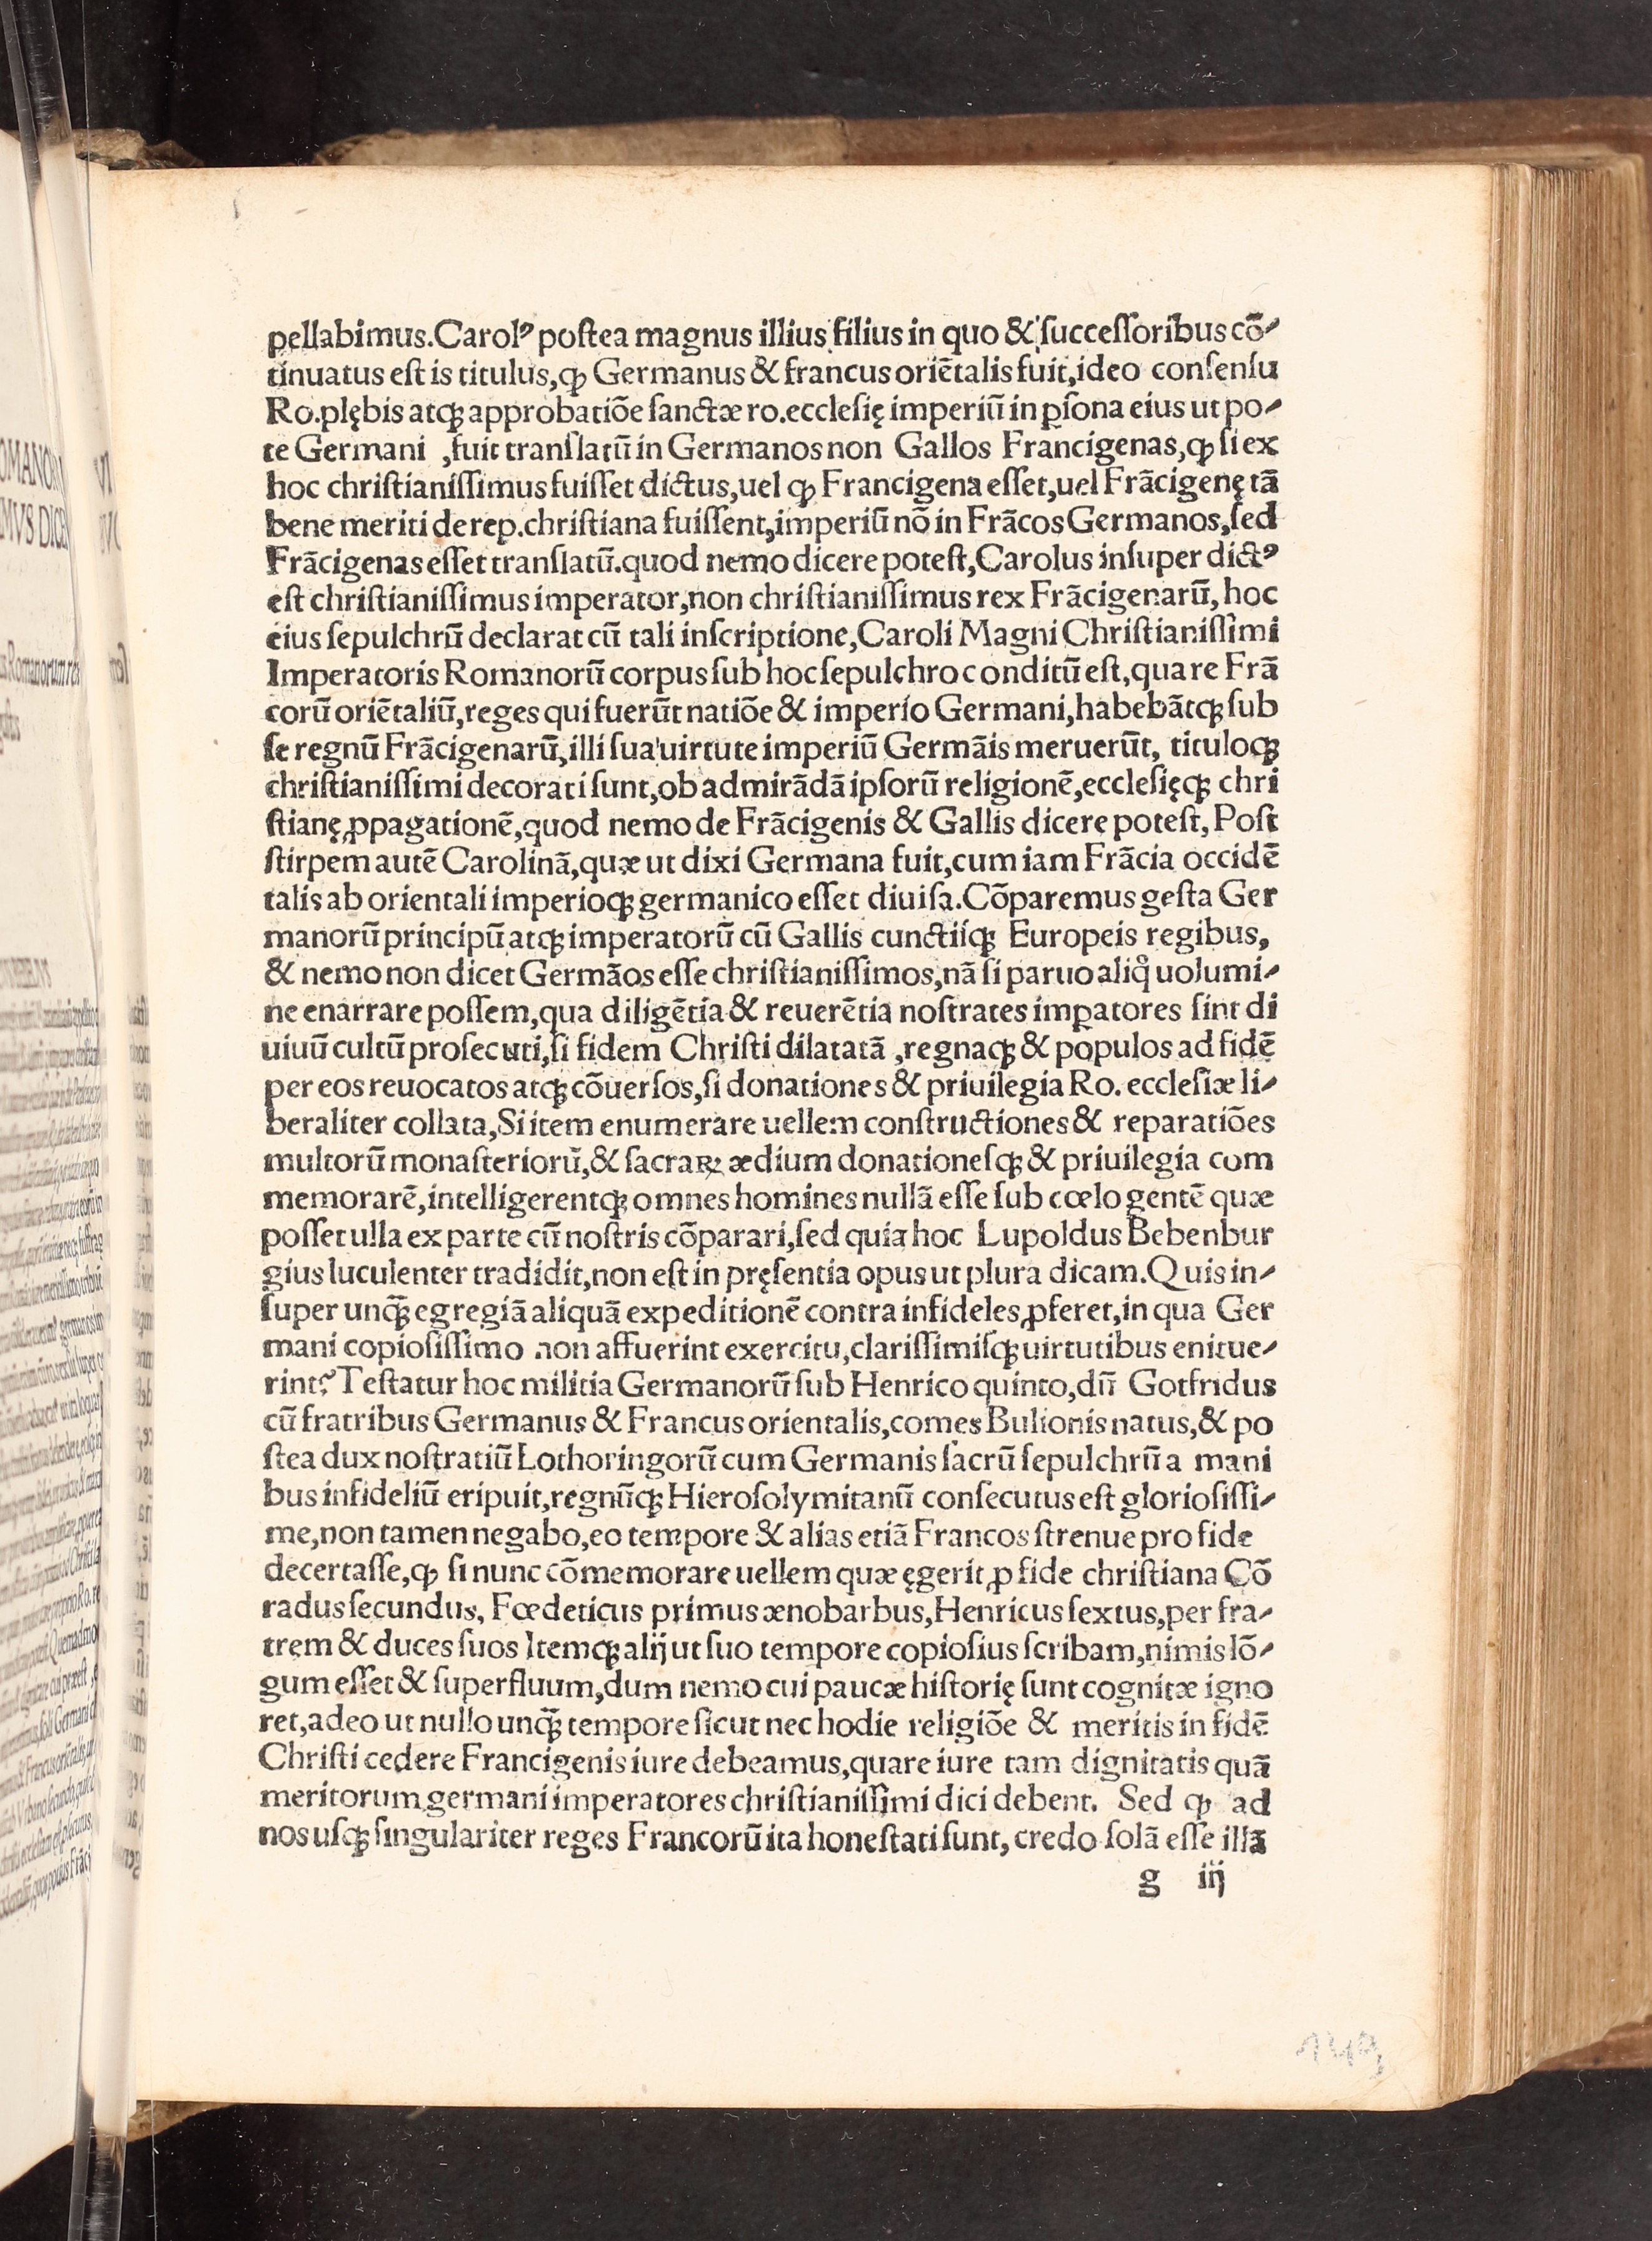 pellabimus.Carolꝰ poſtea magnus illius filius in quo & ſucceſſoribus cõ-
tinuatus eſt is titulus,ꝙ Germanus & francus oriẽtalis fuit,ideo conſenſu
Ro.plębis atqꝫ approbatiõe ſanctæ ro.eccleſię imperiũ in ꝑſona eius ut po-
te Germani ,fuit tranſlatũ in Germanos non Gallos Francigenas,ꝙ ſi ex
hoc chriſtianiſſimus fuiſſet dictus,uel ꝙ Francigena eſſet,uel Frãcigenę tã
bene meriti de rep.chriſtiana fuiſſent,imperiũ nõ in Frãcos Germanos,ſed
Frãcigenas eſſet tranſlatũ.quod nemo dicere poteſt,Carolus inſuper dictꝰ
eſt chriſtianiſſimus imperator,non chriſtianiſſimus rex Frãcigenarũ, hoc
eius ſepulchrũ declarat cũ tali inſcriptione,Caroli Magni Chriſtianiſſimi
Imperatoris Romanorũ corpus ſub hoc ſepulchro conditũ eſt,quare Frã
corũ oriẽtaliũ,reges qui fuerũt natiõe & imperio Germani,habebãtqꝫ ſub
ſe regnũ Frãcigenarũ,illi ſua uirtute imperiũ Germãis meruerũt, tituloqꝫ
chriſtianiſſimi decorati ſunt,ob admirãdã ipſorũ religionẽ,eccleſięqꝫ chri
ſtianę ꝓpagationẽ,quod nemo de Frãcigenis & Gallis dicere poteſt, Poſt
ſtirpem autẽ Carolinã,quæ ut dixi Germana fuit,cum iam Frãcia occidẽ
talis ab orientali imperioqꝫ germanico eſſet diuiſa.Cõparemus geſta Ger
manorũ principũ atqꝫ imperatorũ cũ Gallis cunctiſqꝫ Europeis regibus,
& nemo non dicet Germãos eſſe chriſtianiſſimos,nã ſi paruo aliq̊ uolumi-
ne enarrare poſſem,qua diligẽtia & reuerẽtia noſtrates imꝑatores ſint di
uiuũ cultũ proſecuti,ſi fidem Chriſti dilatatã ,regnaqꝫ & populos ad fidẽ
per eos reuocatos atqꝫ cõuerſos,ſi donationes & priuilegia Ro. eccleſiæ li-
beraliter collata,Si item enumerare uellem conſtructiones & reparatiões
multorũ monaſteriorũ,& ſacraꝝ ædium donationeſqꝫ & priuilegia com
memorarẽ,intelligerentqꝫ omnes homines nullã eſſe ſub cœlo gentẽ quæ
poſſet ulla ex parte cũ noſtris cõparari,ſed quia hoc Lupoldus Bebenbur
gius luculenter tradidit,non eſt in pręſentia opus ut plura dicam.Quis in-
ſuper unqꝫ̃ egregiã aliquã expeditionẽ contra infideles ꝓferet,in qua Ger
mani copioſiſſimo non affuerint exercitu,clariſſimiſqꝫ uirtutibus enitue-
rint? Teſtatur hoc militia Germanorũ ſub Henrico quinto,dũ Gotfridus
cũ fratribus Germanus & Francus orientalis,comes Bulionis natus,& po
ſtea dux noſtratiũ Lothoringorũ cum Germanis ſacrũ ſepulchrũ a mani
bus infideliũ eripuit,regnũqꝫ Hieroſolymitanũ conſecutus eſt glorioſiſſi-
me,non tamen negabo,eo tempore & alias etiã Francos ſtrenue pro fide
decertaſſe,ꝙ ſi nunc cõmemorare uellem quæ ęgerit ꝓ fide chriſtiana Cõ
radus ſecundus, Fœdericus primus ænobarbus,Henricus ſextus,per fra-
trem & duces ſuos Itemqꝫ alij ut ſuo tempore copioſius ſcribam,nimis lõ-
gum eſſet & ſuperfluum,dum nemo cui paucæ hiſtorię ſunt cognitæ igno
ret,adeo ut nullo unqꝫ̃ tempore ſicut nec hodie religiõe & meritis in fidẽ
Chriſti cedere Francigenis iure debeamus,quare iure tam dignitatis quã
meritorum germani imperatores chriſtianiſſimi dici debent. Sed ꝙ ad
nos uſqꝫ ſingulariter reges Francorũ ita honeſtati ſunt, credo ſolã eſſe illã
g iij